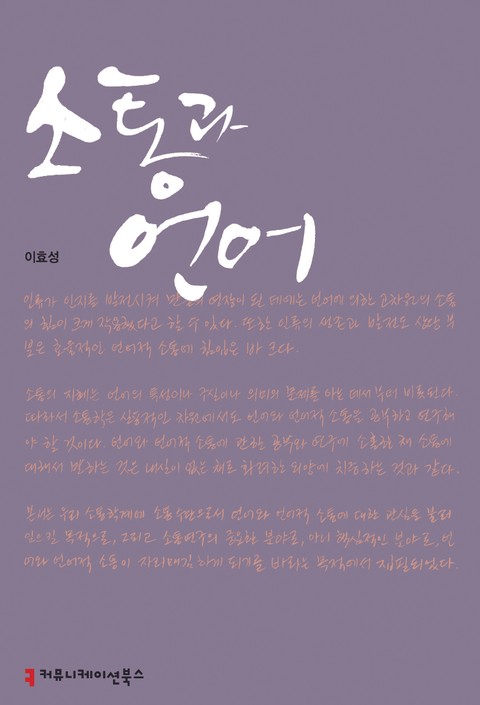 소통과
언어
이효성
인류가 인지를 발전시켜 만물의 영장이 된 데에는 언어에 의한 고차원의 소통
의 힘이 크게 작용했다고 할 수 있다. 또한 인류의 생존과 발전도 상당 부
분은 효율적인 언어적 소통에 힘입은 바 크다.
소통의 지혜는 언어의 속성이나 구실이나 의미의 문제를 아는 데서부터 비롯된다.
따라서 소통학은 실용적인 차원에서도 언어와 언어적 소통을 공부하고 연구해
야 할 것이다. 언어와 언어적 소통에 관한 공부와 연구에 소홀한 채 소통에
대해서 말하는 것은 내실이 없는 채로 화려한 외양에 치장하는 것과 같다.
본서는 우리 소통학계에 소통수단으로서 언어와 언어적 소통에 대한 관심을 불러
일으킬 목적으로, 그리고 소통연구의 중요한 분야로, 아니 핵심적인 분야로, 언
어와 언어적 소통이 자리매김하게 되기를 바라는 목적에서 집필되었다.
커뮤니케이션북스